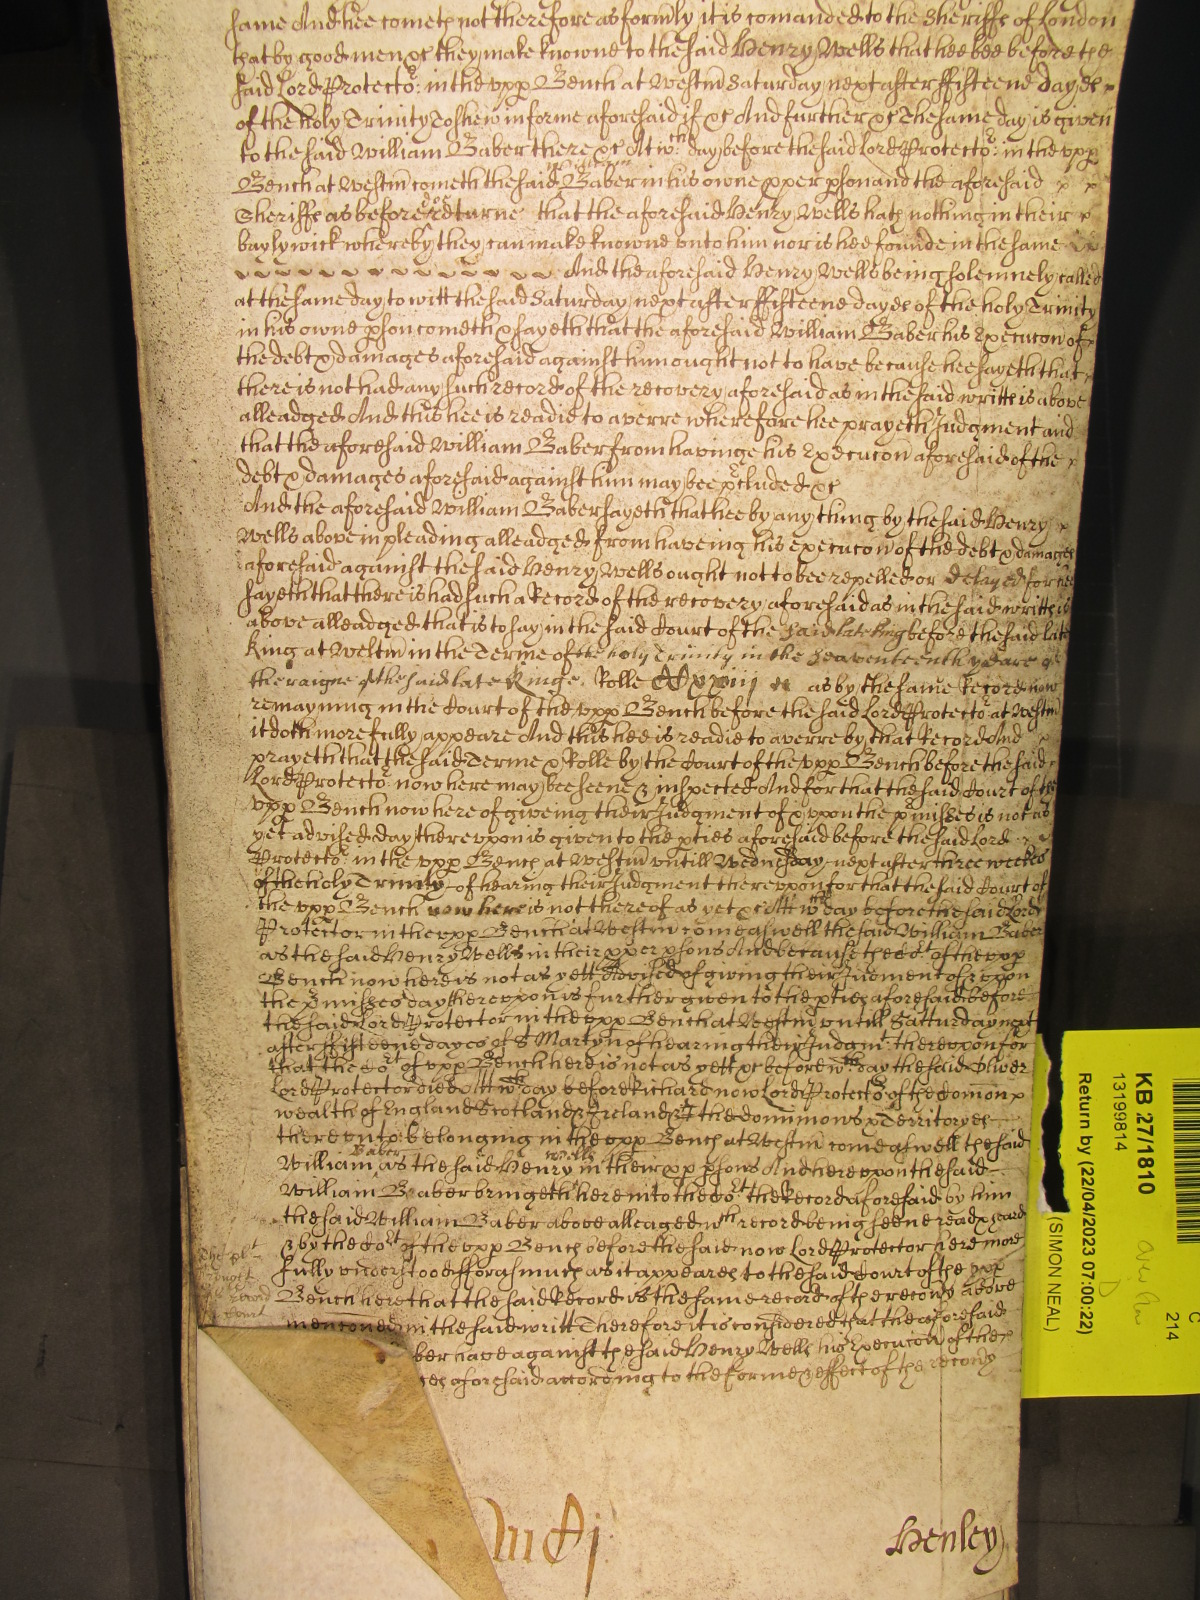 same And hee cometh not therefore as formly it is comanded to the Sheriffs of London
that by good men &c they make knowne to the said Henry Wells that hee bee before the
said Lord Protector in the vpp Bench at Westm Saturday next after ffifteene dayes
of the holy Trinity To shew in forme aforesaid if &c And further &c The same day is given
to the said William Baber there &c At wch day before the said Lord Protector in the vpp
Bench at Westm cometh the said William Baber in his owne pper pson and the aforesaid
Sheriffs as before returne that the aforesaid Henry Wells hath nothing in their
baylywick whereby they can make knowne vnto him nor is hee founde in the same
And the aforesaid Henry Wells being solemnely called
at the same day to witt the said Saturday next after ffifteene dayes of the holy Trinity
in his owne pson cometh & sayeth that the aforesaid William Baber his Execucon of
the debt & damages aforesaid against him ought not to have because hee sayeth that
there is not had any such record of the recovery aforesaid as in the said writt is above
alleadged And this hee is readie to averre wherefore hee prayeth Judgment and
that the aforesaid William Baber from havinge his Execucon aforesaid of the
debt & damages aforesaid against him may bee pcluded &c
And the aforesaid William Baber sayeth that hee by any thing by the said Henry
Wells above in pleading alleadged from haveing his execucon of the debt & damages
aforesaid against the said Henry Wells ought not to bee repelled or delayed for hee
sayeth that there is had such a Record of the recovery aforesaid as in the said writt is
above alleadged that is to say in the said Court of the said late King before the said late
King at Westm in the Terme of the holy Trinity in the seaventeenth yeare of
the raigne of the said late Kinge Rolle as by the same Record now
remayning in the Court of the vpp Bench before the said Lord Protector at Westm
it doth more fully appeare And this hee is readie to averre by that Record And
prayeth that the said Terme & Rolle by the Court of the vpp Bench before the said
Lord Protector now here may bee seene & inspected And for that the said Court of the
vpp Bench now here of giveing their Judgment of & vpon the pmisses is not as
yet advised day therevpon is given to the pties aforesaid before the said Lord
Protector in the vpp Bench at Westm vntill Wednesday next after three weekes
of the holy Trinity of hearing their Judgment therevpon for that the said Court of
the vpp Bench now here is not thereof as yet &c Att wch day before the said Lord
Protector in the vpp Bench at Westm come aswell the said William Baber
as the said Henry Wells in their pper psons And because the Cort of the vpp
Bench now here is not as yett Advised of giving their Judment of & vpon
the pmisses day therevpon is further given to the pties aforesaid before
the said Lord Protector in the vpp Bench at Westm vntill Satturday next
after ffifteene dayes of St Martyn of hearing their Judgmt therevpon for
that the Cort of vpp Bench here is not as yett &c before wch day the said Oliver
Lord Protector died Att wch day before Richard now Lord Protector of the Comon
wealth of England Scotland & Ireland & the dominions & Territoryes
therevnto belonging in the vpp Bench at Westm come aswell the said
William Baber as the said Henry Wells in their pp psons And herevpon the said
William Baber bringeth here into the Cort the Record aforesaid by him
the said William Baber above alleaged wch record being seene read & heard
& by the Cort of the vpp Bench before the said now Lord Protector here more
fully vnderstood fforasmuch as it appeares to the said Court of the vpp
Bench here that the said Record is the same record of the recovy above
menconed in the said writt Therefore it is considered that the aforesaid
ber have against the said Henry Wells his Execucon of the
ges aforesaid according to the forme & effect of the recovy
Henley
KB 27/1810
13199814
Return by (22/04/2023 07:00:22)
(SIMON NEAL)
214